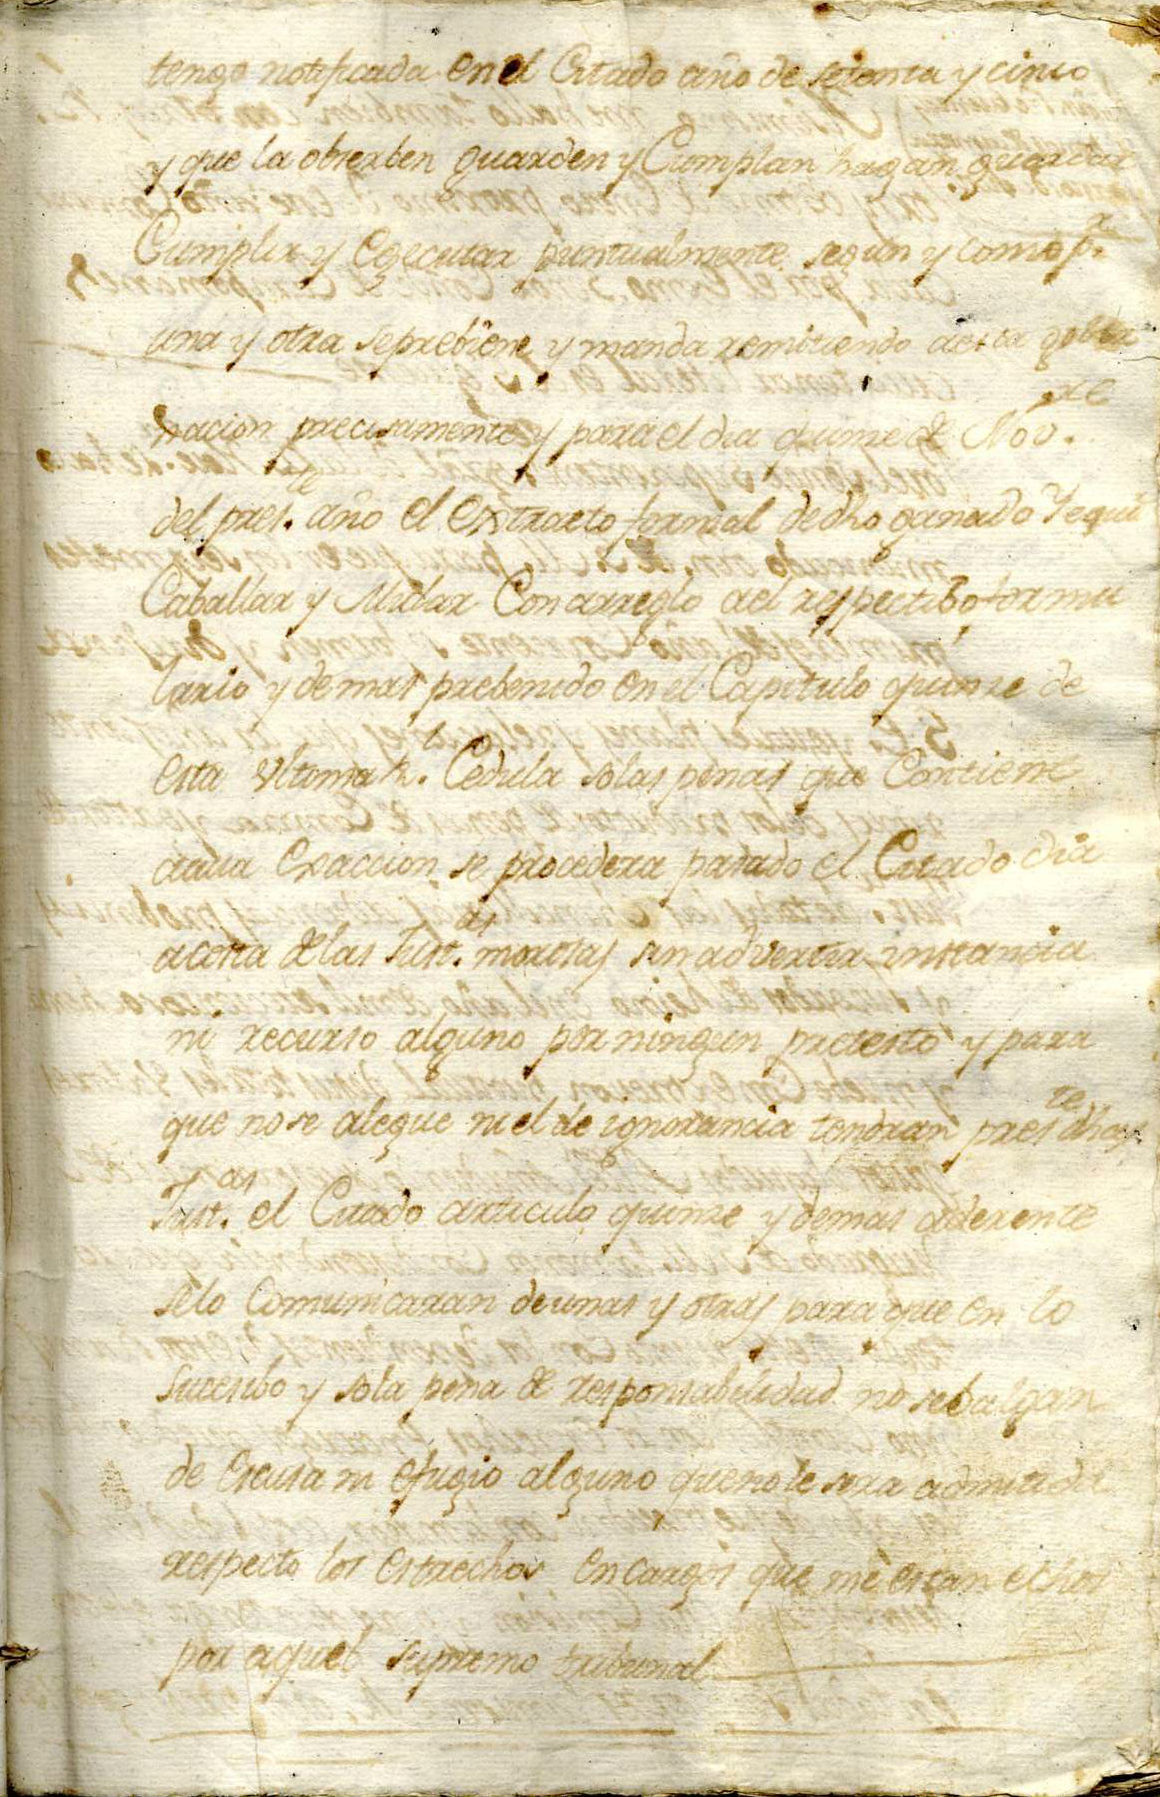 tengo notificada en el Citado año de setenta y cinco
y que la obserben guarden y Cumplan hagan guardar
Cumplir y Egecutar puntualmente segun y como pr.
una y otra seprebiene y manda remitiendo aesta gober
nacion precisamente y para el dia quinze de Novre.
del preste. año el extracto formal dedho ganado Yegua
Caballar y Mular Con arreglo ael respectibo formu
lario y demas prebenido en el Capitulo quinze de
esta vltima Rl. Cedula solas penas que Contiene
acuia exaccion se procedera pasado el Citado dia
acosta de las Justas. morosas sin advertir instancia
ni recurso alguno por ningun pretesto y para
que nose alegue ni el de ignorancia tendran preste dhas
Justas. el Citado articulo quinze y demas aderente
selo Comunicaran deunas y otras para que en lo
sucesibo y sola pena de responsabilidad no sebalgan
de escusa ni efugio alguno queno le sera admitido
respecto los estrechos encargos que me estan echos
por aquel supremo tribunal